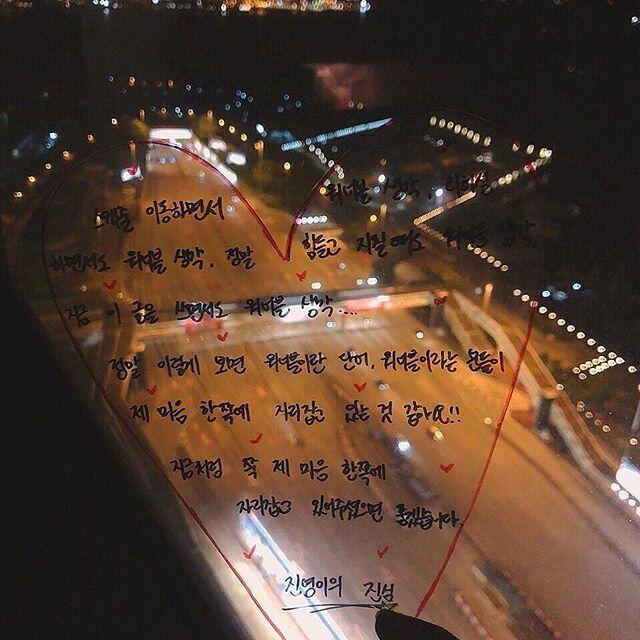 스케줄 이동하면서 워너블 생각, 리허설
하면서도 워너블 생각, 정말 힘들고 지칠 때도 워너블 생각
지금 이 글을 쓰면서도 워너블 생각....
정말 이렇게 보면 워너블이란 단어, 워너블이라는 분들이
제 마음 한쪽에 자리잡고 있는 것 같아요!!
지금처럼 쭉 제 마음 한쪽에
자리잡고 있어주셨으면 좋겠습니다.
진영이의 진심